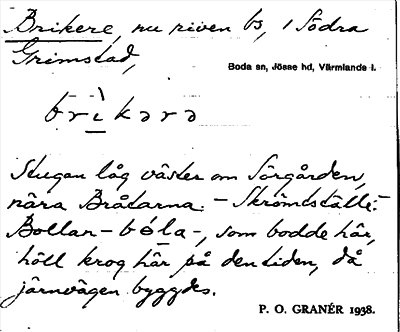 Brikere, nu riven bs, i Södra
Grimstad,
Boda sn, Jösse hd, Värmlands l.
brìkərə
Stugan låg väster om Sörgården,
nära Bråtarna. - Skrömtställe.
Bollan - bóla -, som bodde här,
höll krog här på den tiden, då
järnvägen byggdes.
P. O. GRANÉR 1938.